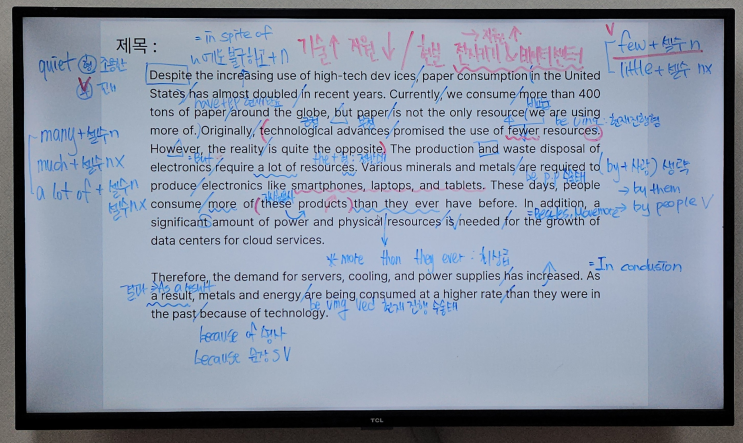 제목 :
= in spite of
n에도 불구하고 + n
기술↑ 자원↓ / 현실
지원↑
전자기기 & 데이터센터
few + 셀수 n
little + 셀수 nx
quiet
many + 셀수 n
much + 셀수 nx
a lot of + 셀수 n
셀수 nx
Despite the increasing use of high-tech dev ices, paper consumption in the United
States has almost doubled in recent years. Currently, we consume more than 400
have + p.p
tons of paper around the globe, but paper is not the only resource we are using
more of. Originally, technological advances promised the use of fewer resources.
However, the reality is quite the opposite. The production and waste disposal of
= but
electronics require a lot of resources. Various minerals and metals are required to
(by + 사람) 생략
produce electronics like smartphones, laptops, and tablets. These days, people
→ by them
consume more of these products than they ever have before. In addition, a
= Besides, Moreover
→ by people
significant amount of power and physical resources is needed for the growth of
data centers for cloud services.
* more than they ever : 최상급
Therefore, the demand for servers, cooling, and power supplies has increased. As
= In conclusion
결과 = As a result
a result, metals and energy are being consumed at a higher rate than they were in
the past because of technology.
현재 진행 수동태
because of 명사
because 문장 S V
TCL